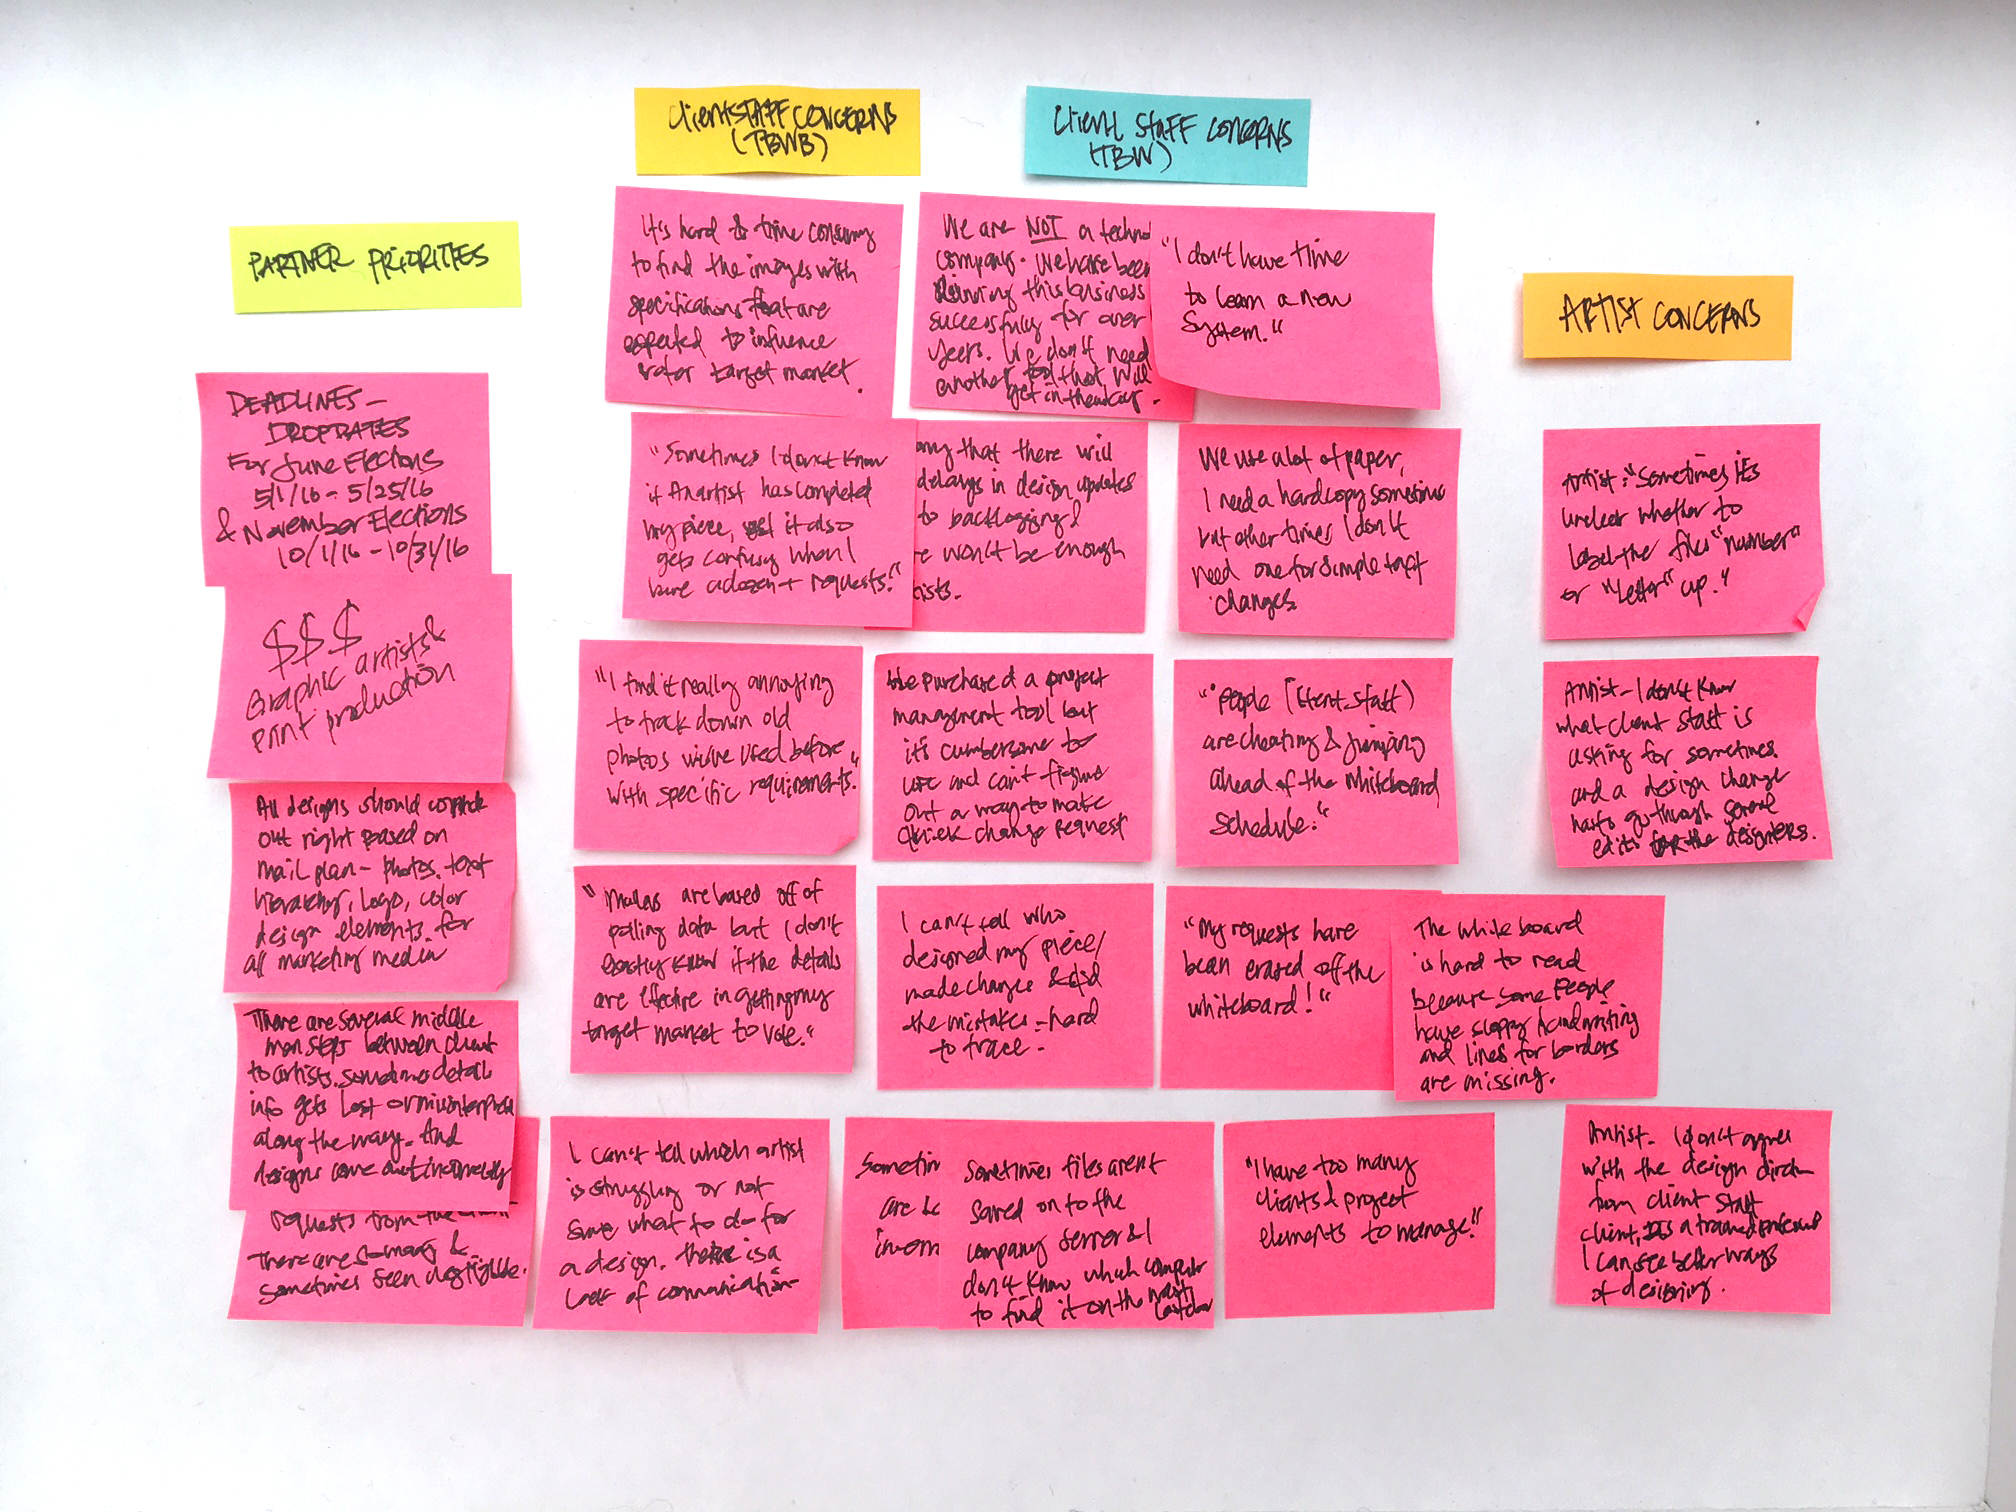 PARTNER PRIORITIES
DEADLINES –
DROPDATES
For June Elections
5/1/16 - 5/25/16
& November Elections
10/1/16 - 10/31/16
$$$
Graphic artists &
print production
All designs should
out right based on
mail plan – photos, text
hierarchy, logo, color
design elements for
all marketing media
There are several middle
man steps between client
to artists. Sometimes detail
info gets lost or
along the way. And
designs come out incorrectly
requests from the
There are so many &
sometimes seem negligible.
Client STAFF CONCERNS
(TBWB)
It's hard & time consuming
to find the images with
specifications that are
expected to influence
voter target market.
"Sometimes I don't know
if an artist has completed
my piece, it also
gets confusing when I
have a dozen + requests."
"I find it really annoying
to track down old
photos we've used before
with specific requirements."
"Mailers are based off of
polling data but I don't
exactly know if the details
are effective in getting my
target market to vote."
I can't tell which artist
is struggling or not
sure what to do for
a design. There is a
lack of communication
CLIENT STAFF CONCERNS
(TBW)
We are NOT a techno
company. We have been
running this business
successfully for over
years. We don't need
another tool that will
get in the way.
"I don't have time
to learn a new
system."
that there will
delays in design updates
to backlogging &
won't be enough
We use a lot of paper,
I need a hardcopy sometimes
but other times I don't
need one for simple text
changes
We purchased a project
management tool but
it's cumbersome to
use and can't figure
out a way to make
quick change request
"People [client staff)
are cheating & jumping
ahead of the whiteboard
schedule."
I can't tell who
designed my piece/
made changes & did
the mistakes – hard
to trace –
"My requests have
been erased off the
whiteboard!"
The whiteboard
is hard to read
because some people
have sloppy handwriting
and lines for borders
are missing.
Sometim
are
Sometimes files aren't
saved on to the
company server & I
don't know which computer
to find it on the
"I have too many
clients & project
elements to manage."
ARTIST CONCERNS
Artist: "Sometimes it's
unclear whether to
label the files "number"
or "Letter" up."
Artist – I don't know
what client staff is
asking for sometimes
and a design change
has to go through several
edits for the designers.
Artist – I don't agree
with the design
from client staff
client, as a trained
I can see better ways
of designing.